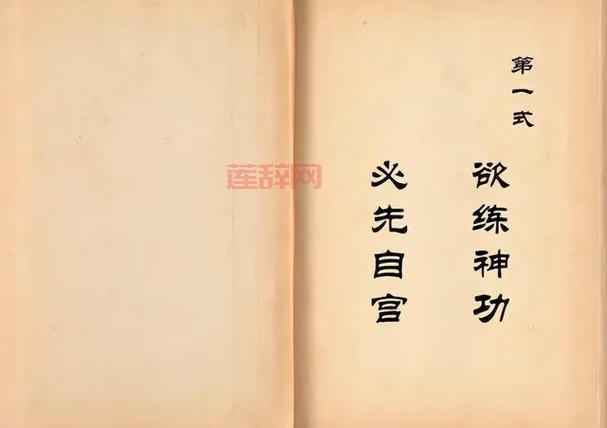 第一式
欲练神功
必先自宫
莲辞网